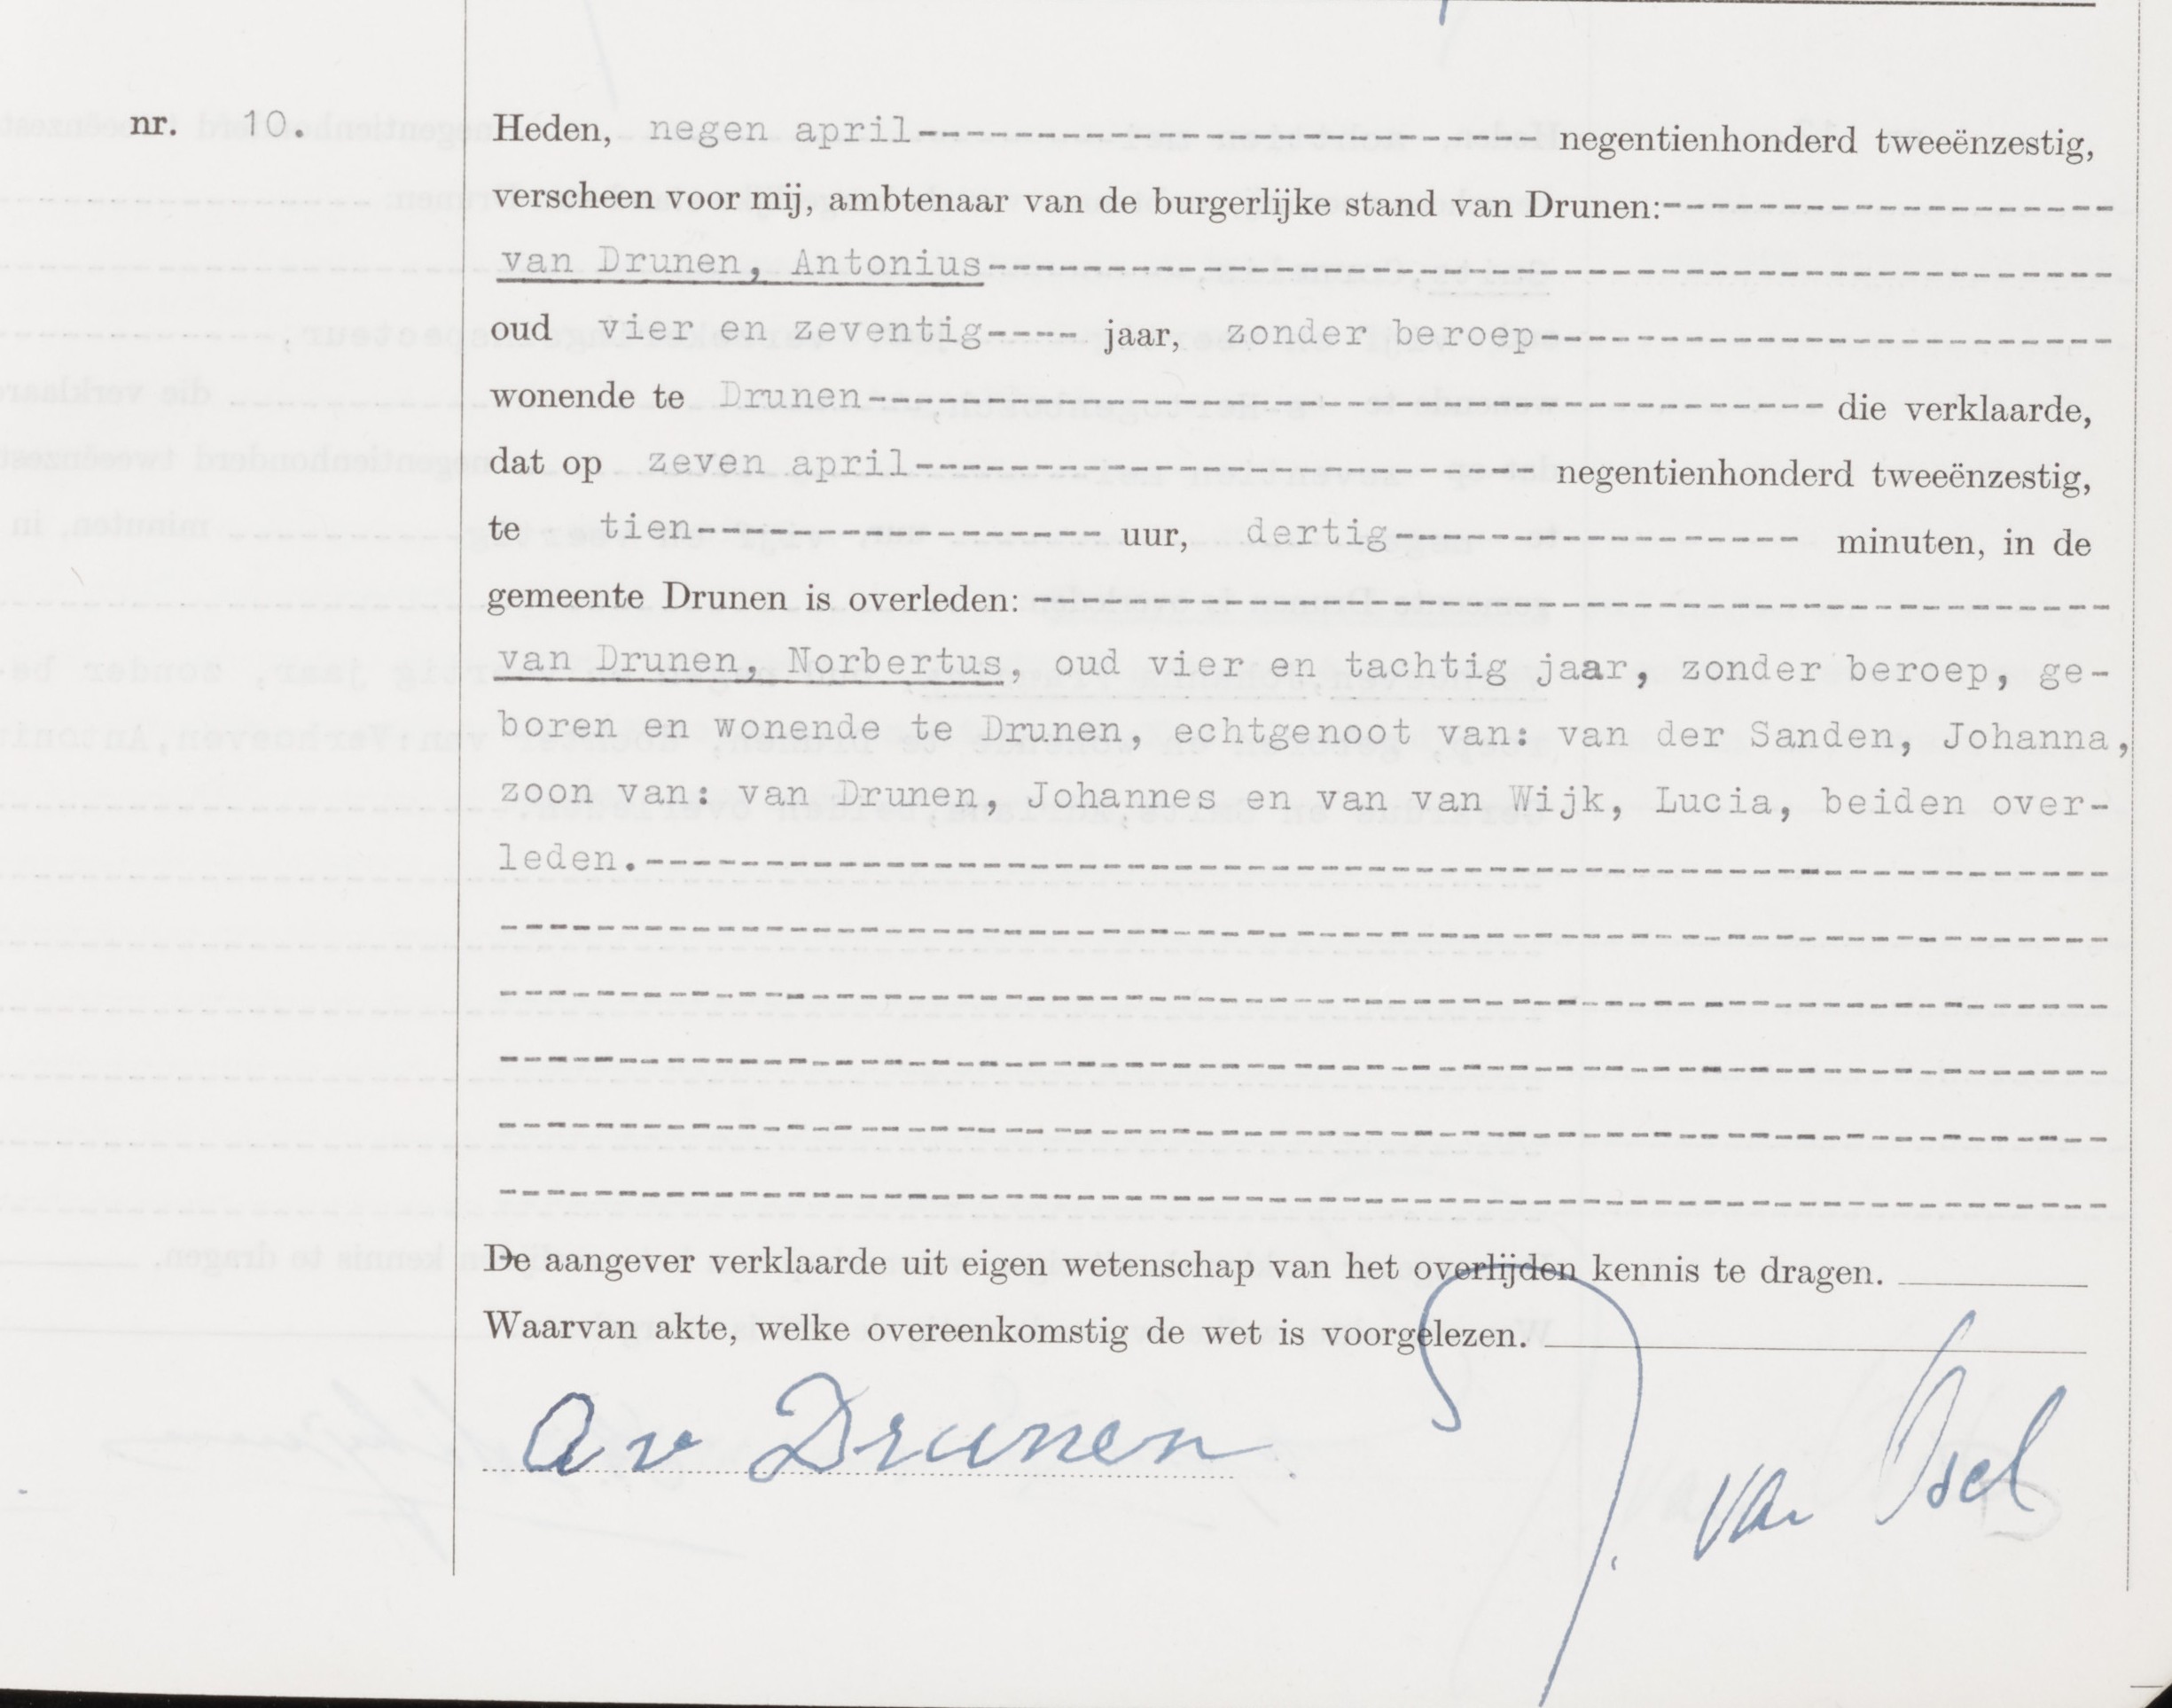 nr. 10.
Heden, negen april negentienhonderd tweeënzestig,
verscheen voor mij, ambtenaar van de burgerlijke stand van Drunen:
van Drunen, Antonius
oud vier en zeventig jaar, zonder beroep
wonende te Drunen die verklaarde,
dat op zeven april negentienhonderd tweeënzestig,
te tien uur, dertig minuten, in de
gemeente Drunen is overleden:
van Drunen, Norbertus, oud vier en tachtig jaar, zonder beroep, ge-
boren en wonende te Drunen, echtgenoot van: van der Sanden, Johanna,
zoon van: van Drunen, Johannes en van van Wijk, Lucia, beiden over-
leden.
De aangever verklaarde uit eigen wetenschap van het overlijden kennis te dragen.
Waarvan akte, welke overeenkomstig de wet is voorgelezen.
A v Drunen
van